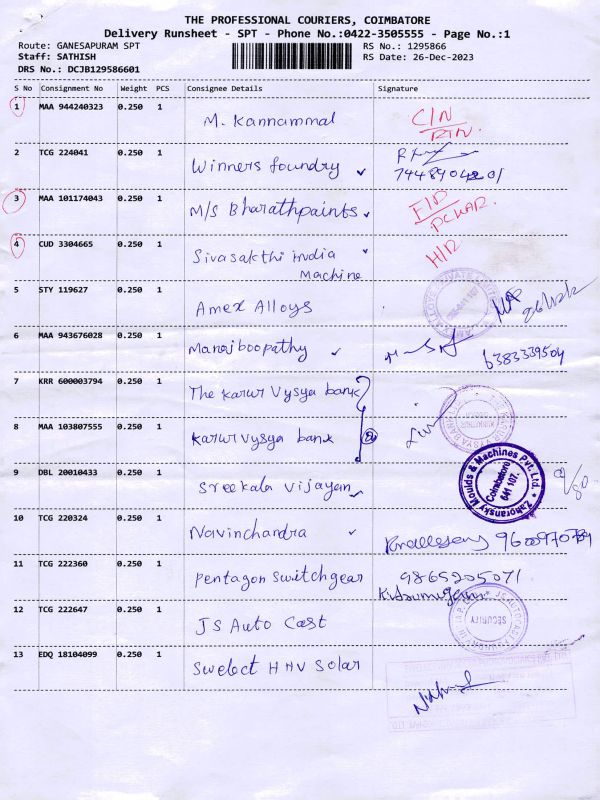 THE PROFESSIONAL COURIERS, COIMBATORE
Delivery Runsheet - SPT - Phone No.:0422-3505555 - Page No.:1
Route: GANESAPURAM SPT
RS No.: 1295866
Staff: SATHISH
RS Date: 26-Dec-2023
DRS No.: DCJB129586601
S No Consignment No Weight PCS Consignee Details Signature
1 MAA 944240323 0.250 1 M. Kannammal C/N
RTN.
2 TCG 224041 0.250 1 Winners foundry
3 MAA 101174043 0.250 1 M/S Bharathpaints
4 CUD 3304665 0.250 1 Sivasakthi india
Machine
5 STY 119627 0.250 1 Amex Alloys
6 MAA 943676028 0.250 1 Manoj boopathy 6383339504
7 KRR 600003794 0.250 1 The Karur Vysya bank
8 MAA 103807555 0.250 1 Karur vysya bank
9 DBL 20010433 0.250 1 Sreekala vijayan
Zahoransky Moulds & Machines Pvt. Ltd.
Coimbatore
641 107.
10 TCG 220324 0.250 1 Navinchandra
11 TCG 222360 0.250 1 Pentagon switchgear 9865205071
12 TCG 222647 0.250 1 JS Auto Cast
SECURITY
13 EDQ 18104099 0.250 1 Swelect HHV Solar